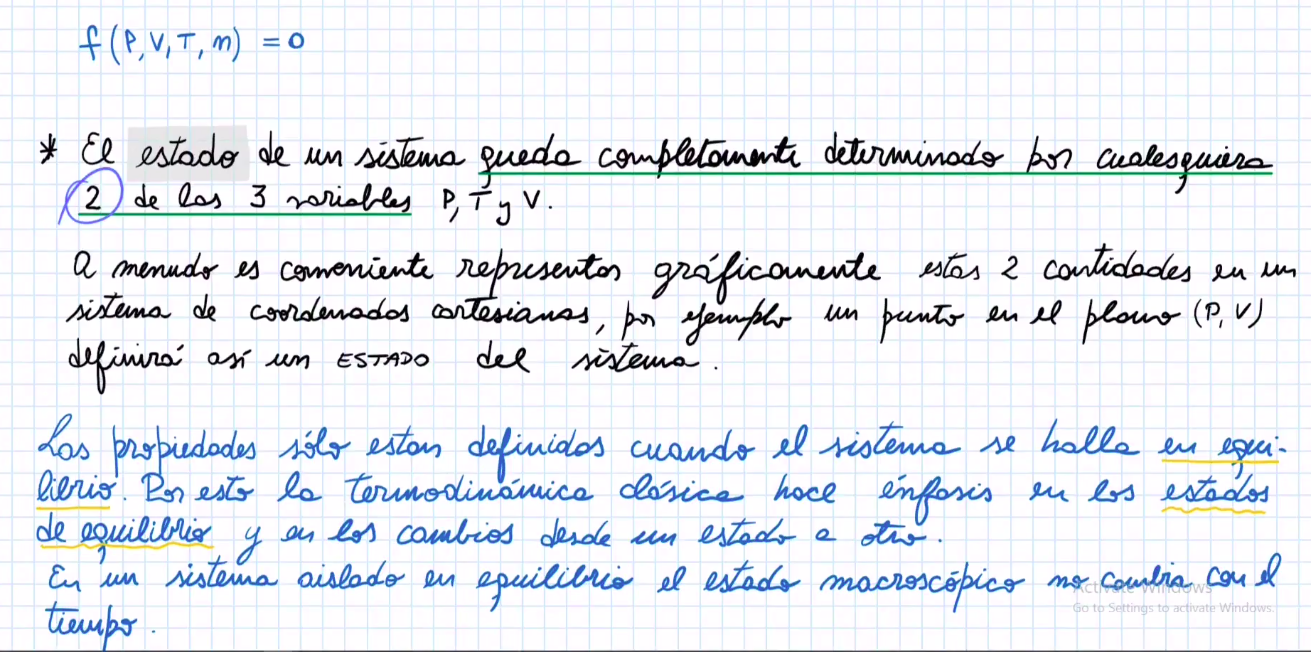 f(P,V,T,n) = 0
* El estado de un sistema queda completamente determinado por cualesquiera
2 de las 3 variables P, T y V.
A menudo es conveniente representar gráficamente estas 2 cantidades en un
sistema de coordenadas cartesianas, por ejemplo un punto en el plano (P, V)
definirá así un ESTADO del sistema.
Las propiedades sólo estan definidas cuando el sistema se halla en equi-
librio. Por esto la termodinámica clásica hace énfasis en los estados
de equilibrio y en los cambios desde un estado a otro.
En un sistema aislado en equilibrio el estado macroscópico no cambia con el
tiempo.
Activate Windows
Go to Settings to activate Windows.